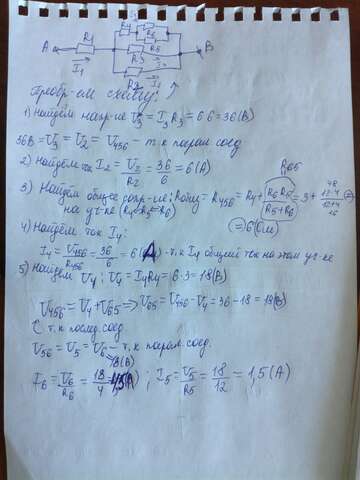 R4
R1
R5
A
B
R3
I1
I3
R2
I2
Преобр-ем схему:
1) найдём напр-ие U3 = I3 R3 = 6·6 = 36(В)
36В = U3 = U2 = U456 - т.к парал. соед.
2) Найдём ток I2 = U2/R2 = 36/6 = 6(А)
R65
3) Найдём общее сопр-ие: Rобщ = R456 = R4 + R6·R5/R5+R6 = 3 +
на уч-ке (R4-R5-R6)
= 6(Ом)
4) Найдём ток I4:
I4 = U456/R456 = 36/6 = 6(А) - т.к I4 общий ток на этом уч-ке
5) Найдём U4: U4 = I4R4 = 6·3 = 18(В)
U456 = U4 + U65 => U65 = U456 - U4 = 36 - 18 = 18(В)
т.к посл. соед.
U56 = U5 = U6 - т.к парал. соед.
18(В)
I6 = U6/R6 = 18/4 = 4,5(А) ; I5 = U5/R5 = 18/12 = 1,5(А)